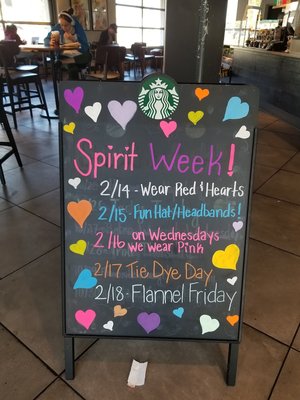 Spirit Week!
2/14 - Wear Red & Hearts
2/15 - Fun Hat/Headbands!
2/16 on Wednesdays
we wear Pink
2/17 Tie Dye Day
2/18 - Flannel Friday